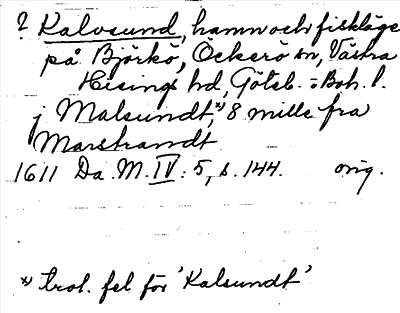 ? Kalvsund, hamn och fiskläge
på Björkö, Öckerö sn, Västra
Hisings hd, Göteb. o. Boh. l.
j Malsundt,*) 8 mille fra
Marstrandt
1611 Da. M. IV: 5, s. 144. orig.
*) trol. fel för 'Kalsundt'